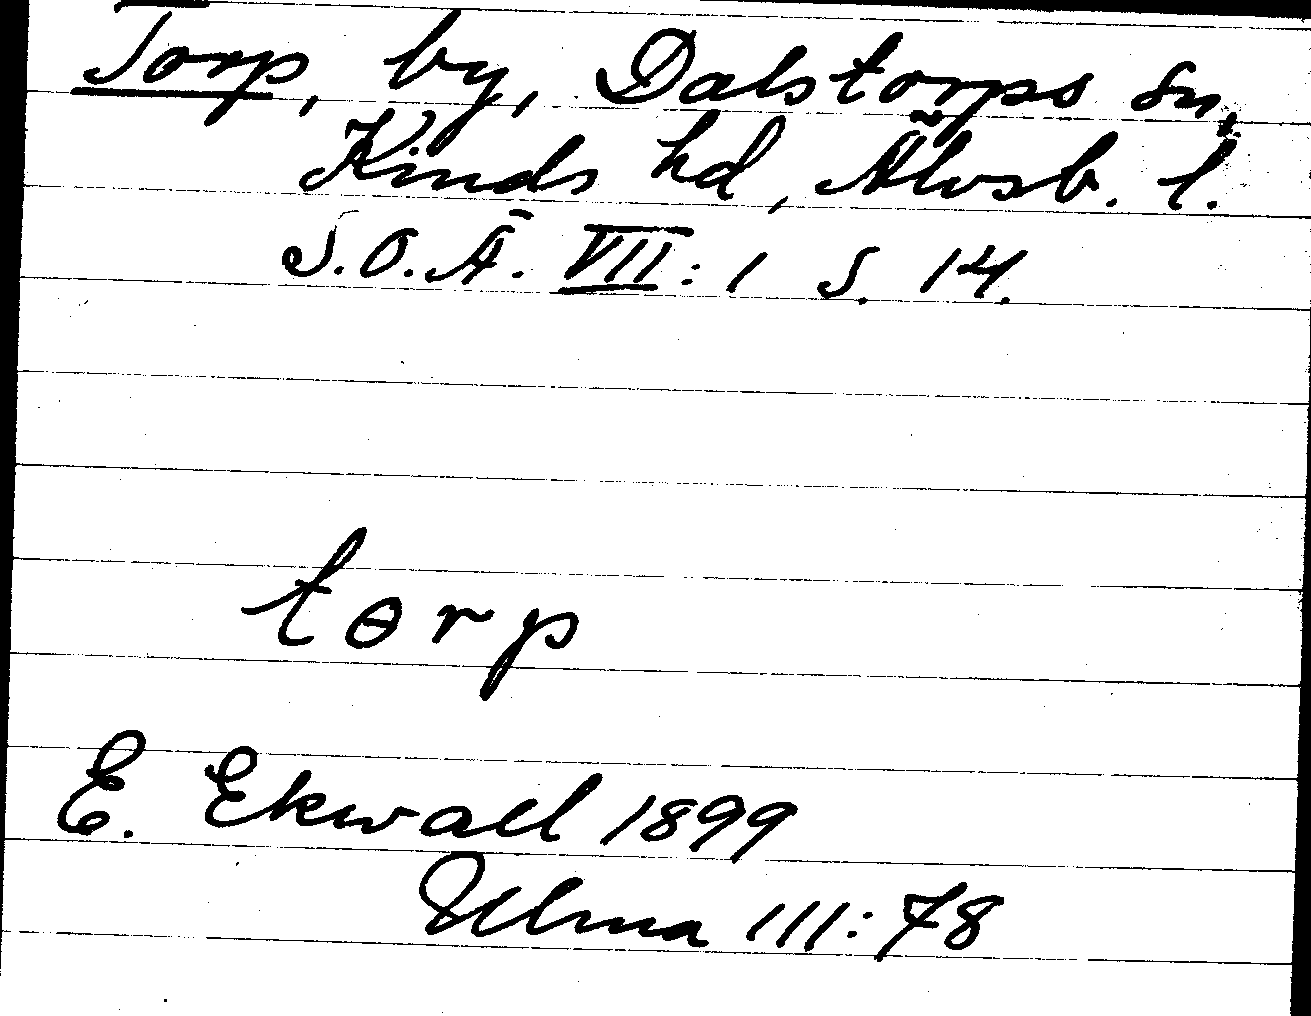 Torp, by, Dalstorps sn,
Kinds hd, Älvsb. l.
S.O.Ä. VII: 1 s. 14.
tɵrp
E. Ekwall 1899
Ulma 111:78